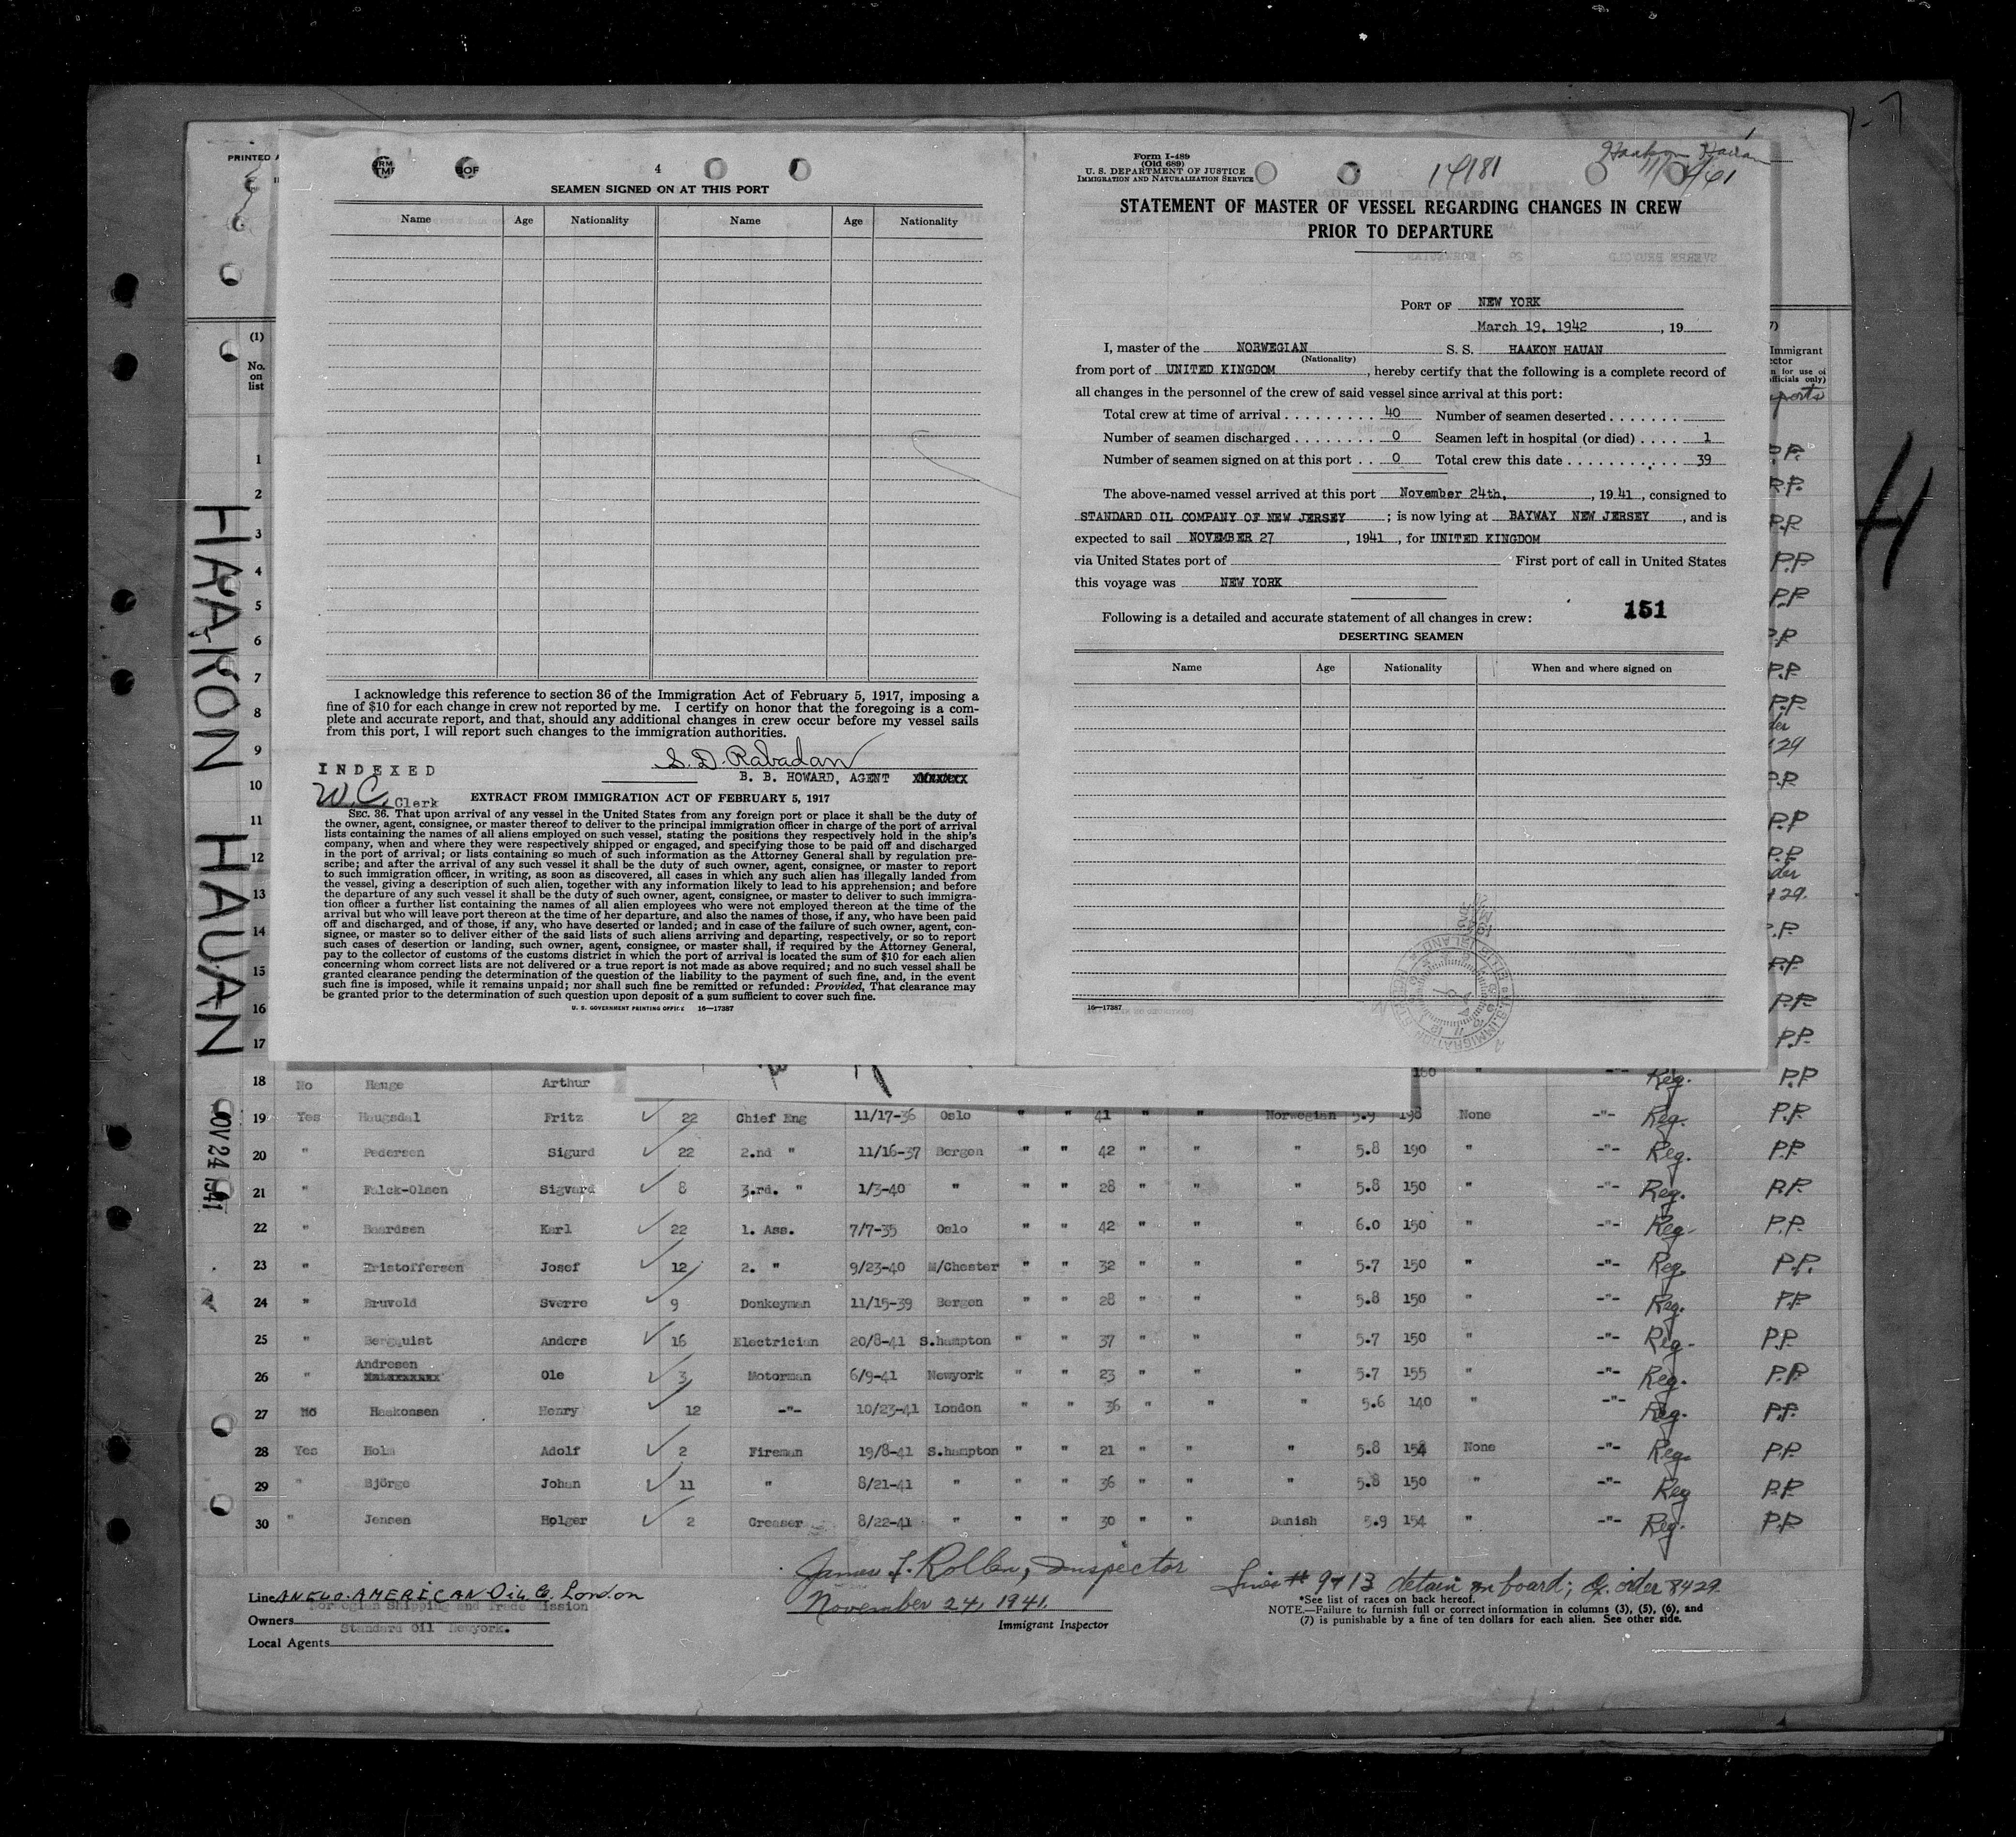 4
SEAMEN SIGNED ON AT THIS PORT
Name Age Nationality Name Age Nationality
I acknowledge this reference to section 36 of the Immigration Act of February 5, 1917, imposing a
fine of $10 for each change in crew not reported by me. I certify on honor that the foregoing is a com-
plete and accurate report, and that, should any additional changes in crew occur before my vessel sails
from this port, I will report such changes to the immigration authorities.
S. D. Rabadan
B. B. HOWARD, AGENT
INDEXED
W.C. Clerk
EXTRACT FROM IMMIGRATION ACT OF FEBRUARY 5, 1917
SEC. 36. That upon arrival of any vessel in the United States from any foreign port or place it shall be the duty of
the owner, agent, consignee, or master thereof to deliver to the principal immigration officer in charge of the port of arrival
lists containing the names of all aliens employed on such vessel, stating the positions they respectively hold in the ship's
company, when and where they were respectively shipped or engaged, and specifying those to be paid off and discharged
in the port of arrival; or lists containing so much of such information as the Attorney General shall by regulation pre-
scribe; and after the arrival of any such vessel it shall be the duty of such owner, agent, consignee, or master to report
to such immigration officer, in writing, as soon as discovered, all cases in which any such alien has illegally landed from
the vessel, giving a description of such alien, together with any information likely to lead to his apprehension; and before
the departure of any such vessel it shall be the duty of such owner, agent, consignee, or master to deliver to such immigra-
tion officer a further list containing the names of all alien employees who were not employed thereon at the time of the
arrival but who will leave port thereon at the time of her departure, and also the names of those, if any, who have been paid
off and discharged, and of those, if any, who have deserted or landed; and in case of the failure of such owner, agent, con-
signee, or master so to deliver either of the said lists of such aliens arriving and departing, respectively, or so to report
such cases of desertion or landing, such owner, agent, consignee, or master shall, if required by the Attorney General,
pay to the collector of customs of the customs district in which the port of arrival is located the sum of $10 for each alien
concerning whom correct lists are not delivered or a true report is not made as above required; and no such vessel shall be
granted clearance pending the determination of the question of the liability to the payment of such fine, and, in the event
such fine is imposed, while it remains unpaid; nor shall such fine be remitted or refunded: Provided, That clearance may
be granted prior to the determination of such question upon deposit of a sum sufficient to cover such fine.
U. S. GOVERNMENT PRINTING OFFICE 16—17387
Form I-489
(Old 689)
U. S. DEPARTMENT OF JUSTICE
IMMIGRATION AND NATURALIZATION SERVICE
14181
Haakon Hauan
STATEMENT OF MASTER OF VESSEL REGARDING CHANGES IN CREW
PRIOR TO DEPARTURE
PORT OF NEW YORK
March 19, 1942, 19
I, master of the NORWEGIAN S. S. HAAKON HAUAN
(Nationality)
from port of UNITED KINGDOM, hereby certify that the following is a complete record of
all changes in the personnel of the crew of said vessel since arrival at this port:
Total crew at time of arrival 40 Number of seamen deserted
Number of seamen discharged 0 Seamen left in hospital (or died) 1
Number of seamen signed on at this port 0 Total crew this date 39
The above-named vessel arrived at this port November 24th, , 1941, consigned to
STANDARD OIL COMPANY OF NEW JERSEY; is now lying at BAYWAY NEW JERSEY, and is
expected to sail NOVEMBER 27, 1941, for UNITED KINGDOM
via United States port of First port of call in United States
this voyage was NEW YORK
151
Following is a detailed and accurate statement of all changes in crew:
DESERTING SEAMEN
Name Age Nationality When and where signed on
16—17387
PRINTED
HAAKON HAUAN
NOV 24 1941
H
(1)
No.
on
list
1
2
3
4
5
6
7
8
9
10
11
12
13
14
15
16
17
18 No Hauge Arthur 160 " -"- Reg. P.P.
19 Yes Haugsdal Fritz 22 Chief Eng 11/17-36 Oslo " " 41 " " Norwegian 5.9 198 None -"- Reg. P.P.
20 " Pedersen Sigurd 22 2.nd " 11/16-37 Bergen " " 42 " " " 5.8 190 " -"- Reg. P.P.
21 " Falck-Olsen Sigvard 8 3.rd. " 1/3-40 " " " 28 " " " 5.8 150 " -"- Reg. P.P.
22 " Baardsen Karl 22 1. Ass. 7/7-35 Oslo " " 42 " " " 6.0 150 " -"- Reg. P.P.
23 " Kristoffersen Josef 12 2. " 9/23-40 M/Chester " " 32 " " " 5.7 150 " -"- Reg. P.P.
24 " Bruvold Sverre 9 Donkeyman 11/15-39 Bergen " " 28 " " " 5.8 150 " -"- Reg. P.P.
25 " Bergquist Anders 16 Electrician 20/8-41 S.hampton " " 37 " " " 5.7 150 " -"- Reg. P.P.
26 " Andresen Ole 3 Motorman 6/9-41 Newyork " " 23 " " " 5.7 155 " -"- Reg. P.P.
27 No Haakonsen Henry 12 -"- 10/23-41 London " " 36 " " " 5.6 140 " -"- Reg. P.P.
28 Yes Holm Adolf 2 Fireman 19/8-41 S.hampton " " 21 " " " 5.8 154 None -"- Reg. P.P.
29 " Björge Johan 11 " 8/21-41 " " " 36 " " " 5.8 150 " -"- Reg P.P.
30 " Jensen Holger 2 Greaser 8/22-41 " " " 30 " " Danish 5.9 154 " -"- Reg. P.P.
Line ANGLO-AMERICAN Oil Co. London
Norwegian Shipping and Trade Mission
Owners
Standard Oil Newyork.
Local Agents
James F. Rollen, Inspector
November 24, 1941.
Immigrant Inspector
Lines # 9 & 13 detain on board; G. order 8429.
*See list of races on back hereof.
NOTE.—Failure to furnish full or correct information in columns (3), (5), (6), and
(7) is punishable by a fine of ten dollars for each alien. See other side.